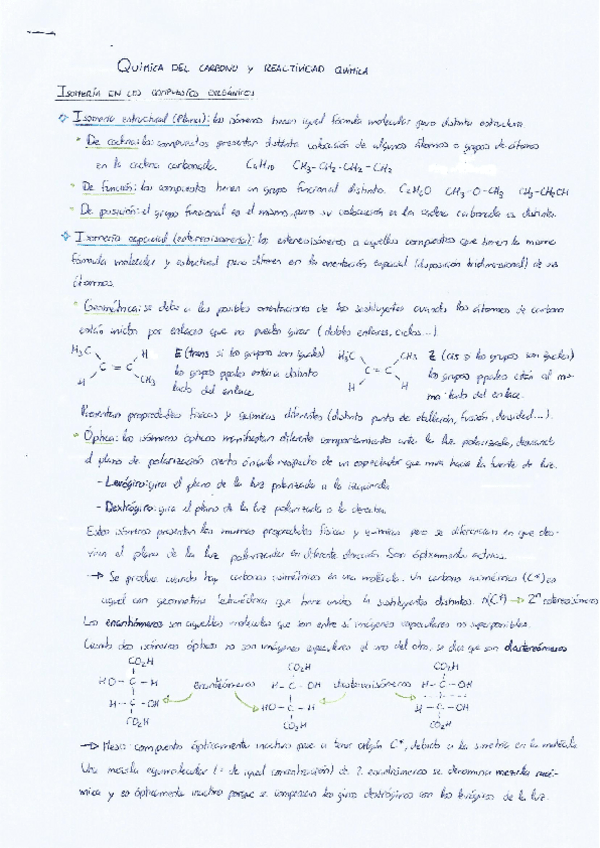 QUÍMICA DEL CARBONO Y REACTIVIDAD QUÍMICA
ISOMERÍA EN LOS COMPUESTOS ORGÁNICOS
Isomería estructural (Plana): los isómeros tienen igual fórmula molecular pero distinta estructura
De cadena: los compuestos presentan distinta colocación de algunos átomos o grupos de átomos
en la cadena carbonada. C4H10 CH3-CH2-CH2-CH3
De función: los compuestos tienen un grupo funcional distinto. C2H6O CH3-O-CH3 CH3-CH2OH
De posición: el grupo funcional es el mismo, pero su colocación en la cadena carbonada es distinta.
Isomería espacial (estereoisomería): los estereoisómeros a aquellos compuestos que tienen la misma
fórmula molecular y estructural pero difieren en la orientación espacial (disposición tridimensional) de sus
átomos.
Geométrica: se debe a las posibles orientaciones de los sustituyentes cuando los átomos de carbono
están unidos por enlaces que no pueden girar (dobles enlaces, ciclos...)
H3C H E (trans si los grupos son iguales) H3C CH3 Z (cis si los grupos son iguales)
C = C los grupos ppales están a distinto C = C los grupos ppales están al mis-
H CH3 lado del enlace H H mo lado del enlace.
Presentan propiedades físicas y químicas diferentes (distinto punto de ebullición, fusión, densidad...).
Óptica: los isómeros ópticos manifiestan diferente comportamiento ante la luz polarizada, desviando
el plano de polarización cierto ángulo respecto de un espectador que mira hacia la fuente de luz.
- Levógiro: gira el plano de la luz polarizada a la izquierda
- Dextrógiro: gira el plano de la luz polarizada a la derecha.
Estos isómeros presentan las mismas propiedades físicas y químicas pero se diferencian en que des-
vían el plano de la luz polarizada en diferente dirección. Son ópticamente activos.
→ Se produce cuando hay carbonos asimétricos en una molécula. Un carbono asimétrico (C*) es
aquel con geometría tetraédrica que tiene unidos 4 sustituyentes distintos. n(C*) → 2ⁿ estereoisómeros
Los enantiómeros son aquellas moléculas que son entre sí imágenes especulares no superponibles.
Cuando dos isómeros ópticos no son imágenes especulares el uno del otro, se dice que son diastereómeros
CO2H CO2H CO2H
HO - C - H enantiómeros H - C - OH diastereoisómeros H - C - OH
H - C - OH HO - C - H H - C - OH
CO2H CO2H CO2H
→ Meso: compuesto ópticamente inactivo pese a tener algún C*, debido a la simetría en la molécula
Una mezcla equimolecular (= de igual concentración) de 2 enantiómeros se denomina mezcla racé-
mica y es ópticamente inactivo porque se compensan los giros dextrógiros con los levógiros de la luz.